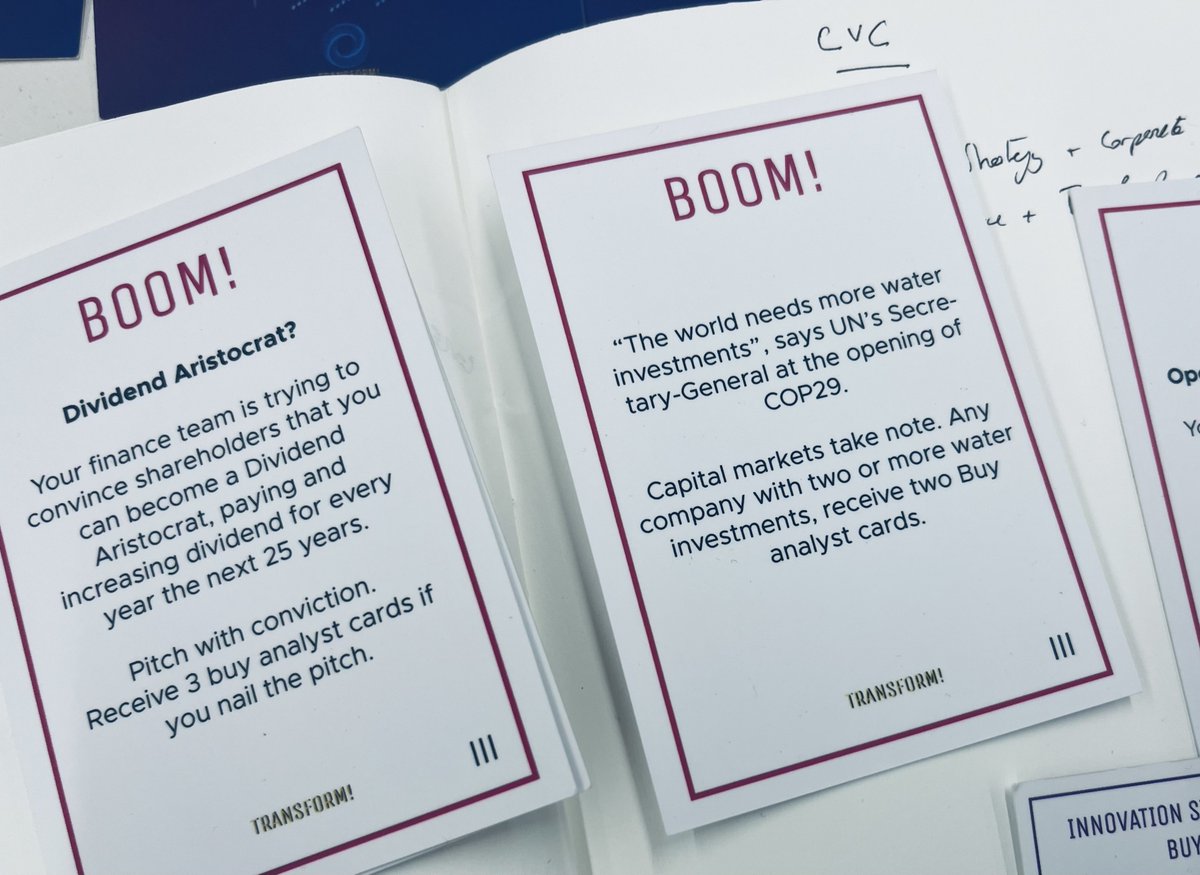 BOOM!
Dividend Aristocrat?
Your finance team is trying to
convince shareholders that you
can become a Dividend
Aristocrat, paying and
increasing dividend for every
year the next 25 years.
Pitch with conviction.
Receive 3 buy analyst cards if
you nail the pitch.
III
TRANSFORM!
CVC
+ Corporate
+
BOOM!
“The world needs more water
investments”, says UN’s Secre-
tary-General at the opening of
COP29.
Capital markets take note. Any
company with two or more water
investments, receive two Buy
analyst cards.
III
TRANSFORM!
INNOVATION
BUY